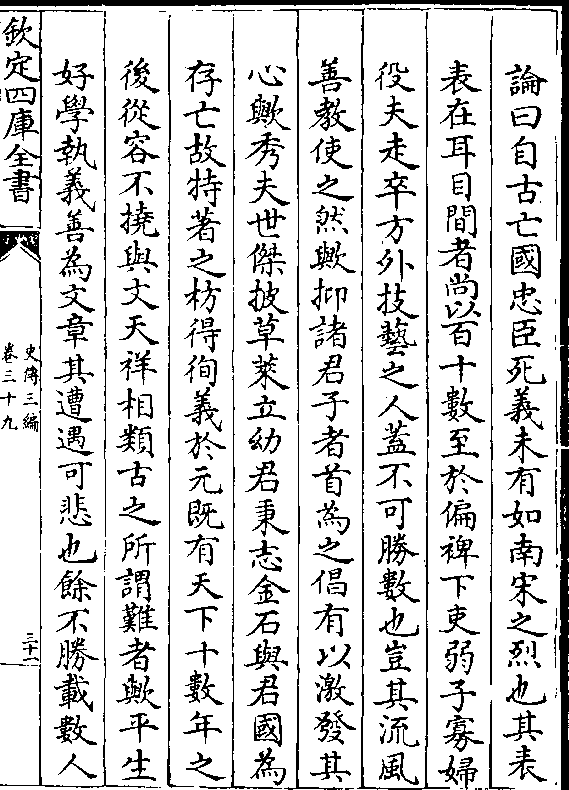 論曰自古亡國忠臣死義未有如南宋之烈也其表
表在耳目間者尚以百十數至於偏裨下吏弱子寡婦
役夫走卒方外技藝之人蓋不可勝數也豈其流風
善教使之然歟抑諸君子者首為之倡有以激發其
心歟秀夫世傑披草萊立幼君秉志金石與君國為
存亡故持著之枋得徇義於元既有天下十數年之
後從容不撓與文天祥相類古之所謂難者歟平生
好學執義善為文章其遭遇可悲也餘不勝載數人
欽定四庫全書
史傳三編
卷三十九
三十一